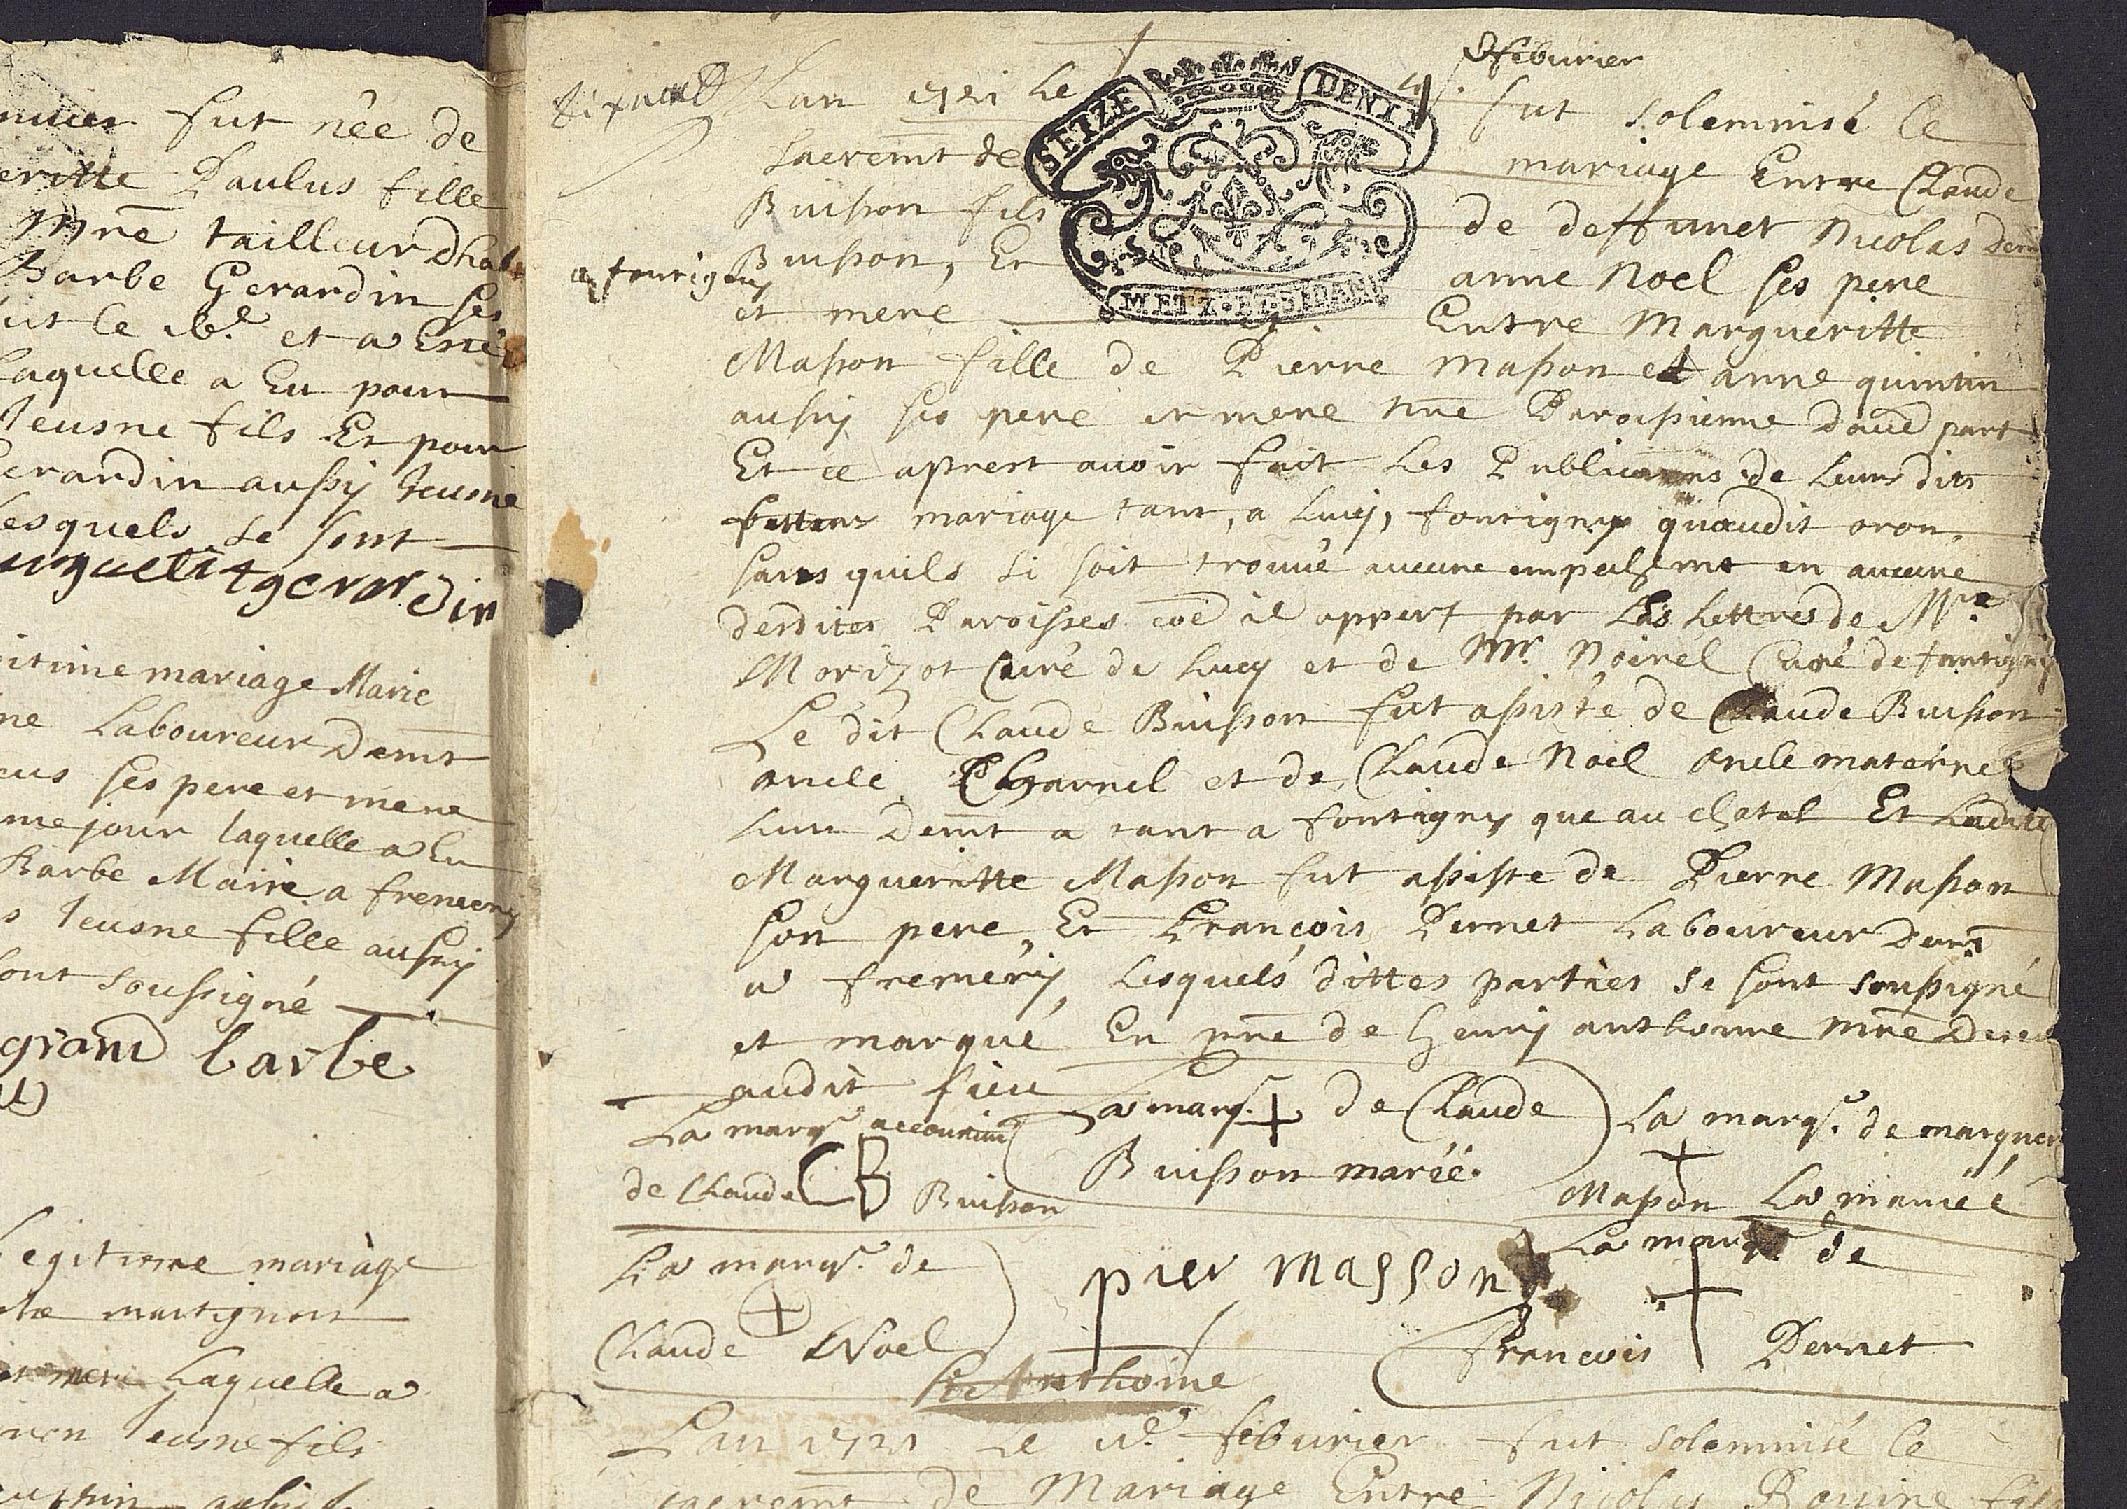 fut née de
Paulus fille
mre tailleur dha
Barbe Gerardin ses
et a Esté
laquelle a Eu pour
Jeusne fils Et pour
Gerardin aussy Jeusne
lesquels se sont
gerardin
mariage Marie
Laboureur Demt
ses pere et mere
jour laquelle a Eu
Barbe Maire a fremery
Jeusne fille aussy
sont soussigné
grand barbe
legitime mariage
martignon
Laquelle a
Jeusne fils
febvrier
Lan 1721 Le fut solemnisé le
SEIZE DENIE
METZ ET SEDAN
sacremt de mariage Entre Claude
Buisson fils de deffunct Nicolas dem
a fontigny
Buisson, Et anne Noel ses pere
et mere Entre Margueritte
Masson fille de Pierre Masson et anne quintin
aussy ses pere et mere Paroissienne dautre part
Et ce apprest avoir fait Les Publica͞ons de Leurs dits
mariage tant, a Lucy, fontigny quaudit oron.
sans quils si soit trouvé aucune empeschemt en aucune
desdites Paroisses coe il appert par Les Lettres de Mre
Morizot Curé de Lucy et de Mr. Noirel Curé de fontigny
Le dit Claude Buisson fut assisté de Claude Buisson
oncle Charnel et de Claude Noel oncle maternel
Leur Demt a tant a fontigny que au chatel Et Ladite
Margueritte Masson fut assiste de Pierre Masson
son pere, Et François Pernet Laboureur Demt
a fremery, Lesquels dittes parties se sont soussigné
et marqué En pñce de henry anthoine mre Desco
audit Lieu
La marq. accoutumé
de Claude CB Buisson
La marq. + de Claude
Buisson marié.
La marq. de marguer
+
Masson La mariée
La marq. de
+
Claude Noel
pier masson
La marq. de
+
francois Pernet
H Anthoine
Lan 1721 Le febvrier fut solemnisé le
sacremt de Mariage Entre Nicolas